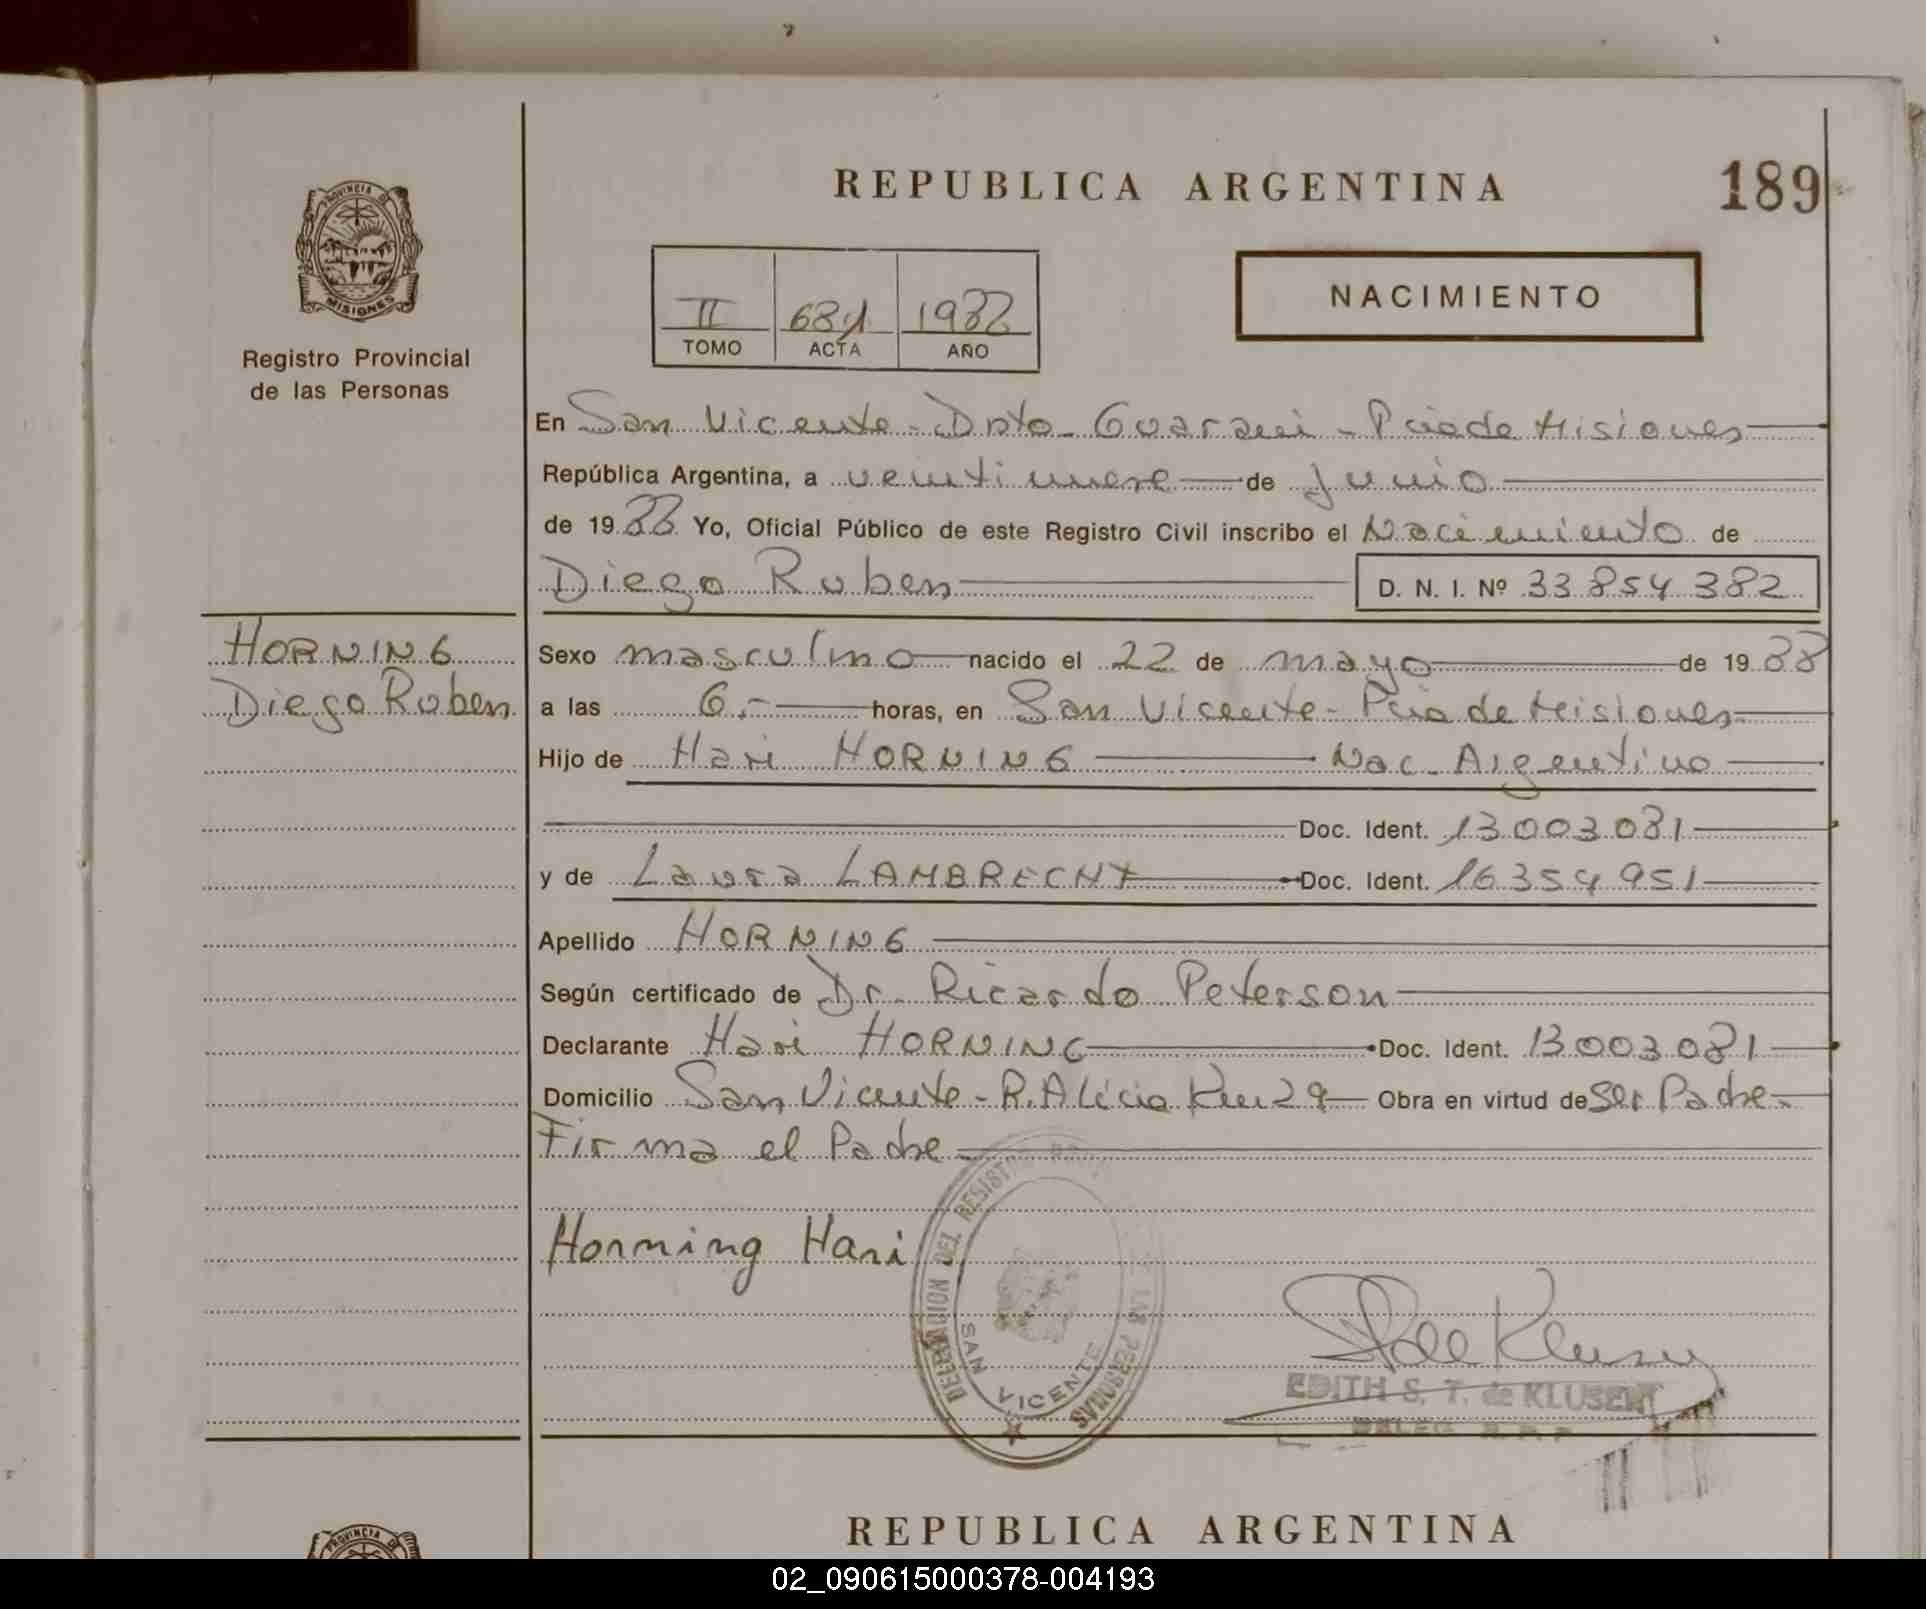 REPUBLICA ARGENTINA
189
PROVINCIA DE
MISIONES
Registro Provincial
de las Personas
II 681 1988
TOMO ACTA AÑO
NACIMIENTO
En San Vicente - Dpto - Guarani - Pcia de Misiones
República Argentina, a veintinueve de Junio
de 1988 Yo, Oficial Público de este Registro Civil inscribo el Nacimiento de
Diego Ruben D. N. I. Nº 33 854 382
HORNING
Diego Ruben
Sexo masculino nacido el 22 de mayo de 1988
a las 6.- horas, en San Vicente - Pcia de Misiones
Hijo de Hari HORNING Nac. Argentino
Doc. Ident. 13 003 081
y de Laura LAMBRECHT Doc. Ident. 16 354 951
Apellido HORNING
Según certificado de Dr. Ricardo Peterson
Declarante Hari HORNING Doc. Ident. 13 003 081
Domicilio San Vicente - R. Alicia Km 29 Obra en virtud de Ser Padre -
Firma el Padre -
Horning Hari
DELEGACION DEL REGISTRO DE LAS PERSONAS
SAN VICENTE
EDITH S. T. de KLUSENY
DELEG. R. P. P.
REPUBLICA ARGENTINA
PROVINCIA
02_090615000378-004193